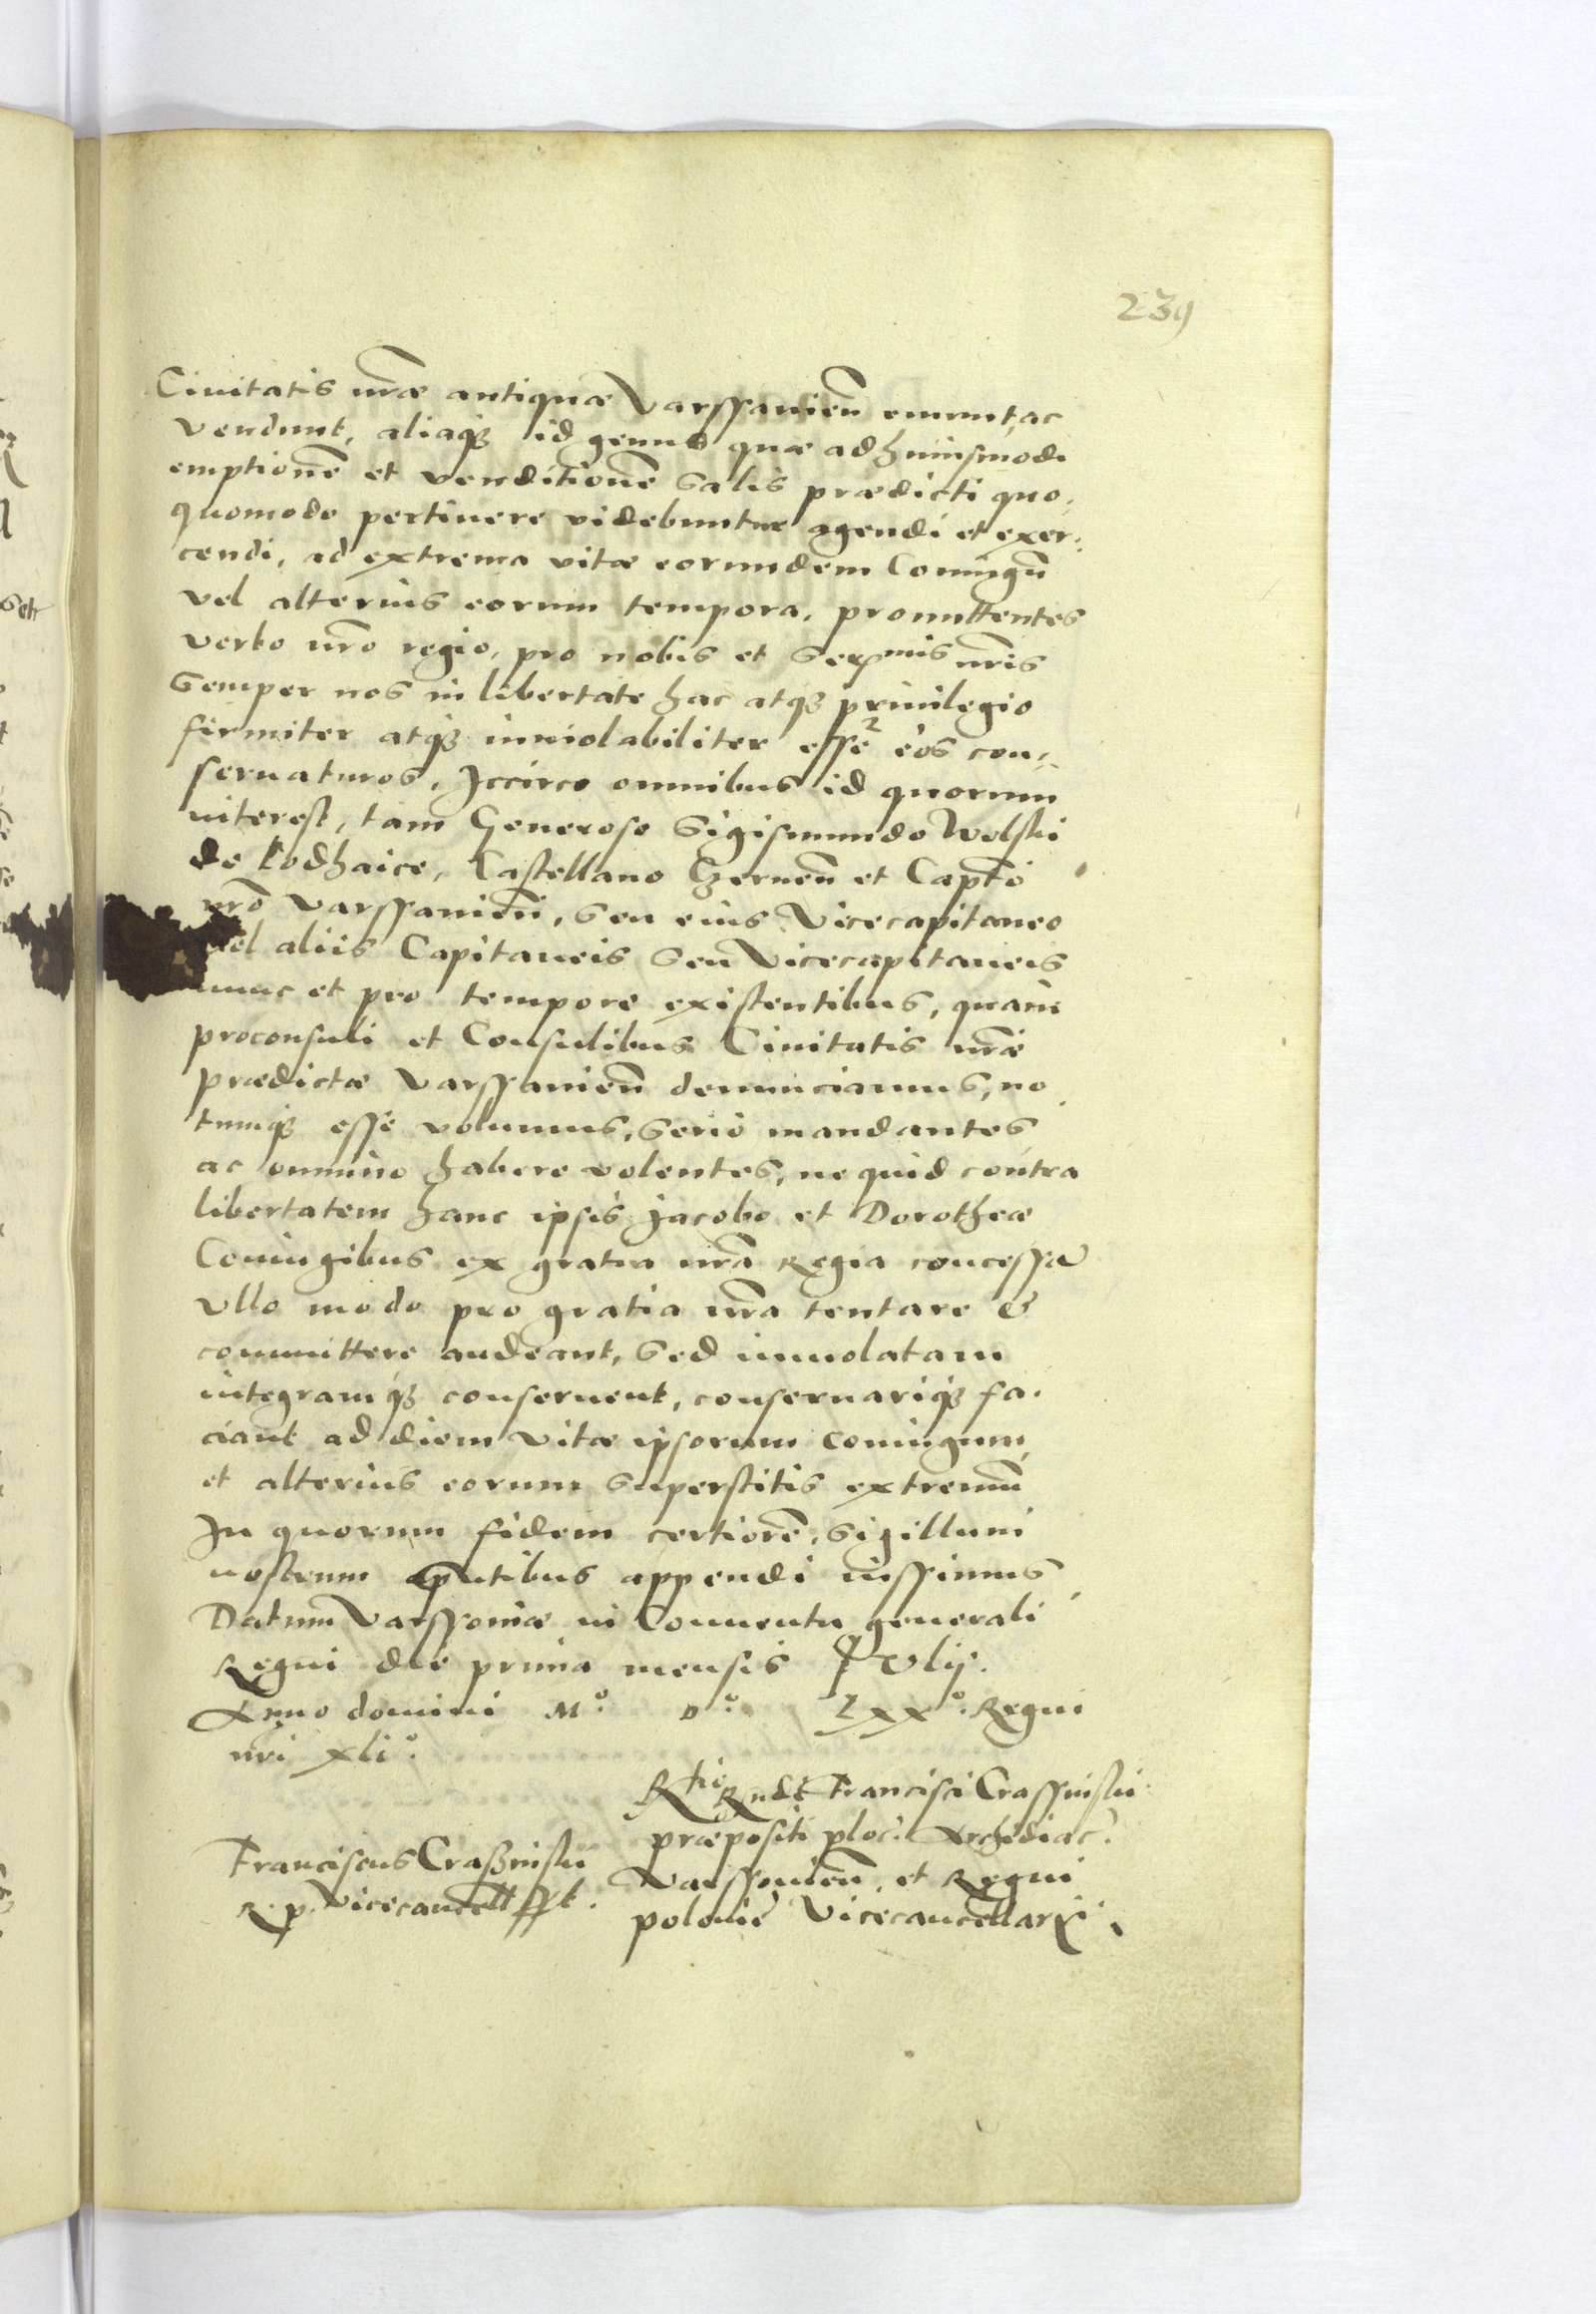 239
Ciuitatis nr̃æ antiquæ Varssauien̄ emunt, ac
vendunt, aliaqꝫ id genus quæ ad huiusmodi
emptionē et venditionē Salis prædicti quo,
quomodo pertinere videbuntur agendi et exer,
cendi, ad extrema vitæ eorundem Coniugū
vel alterius eorum tempora. promittentes
verbo nr̃o regio, pro nobis et Serᵐⁱˢ nr̃is
Semper nos in libertate hac atqꝫ priuilegio
firmiter atqꝫ inuiolabiliter esse eos con-
seruaturos. Iccirco omnibus id quorum
interest, tam Generoso Sigismundo Wolski
de Podhaice, Castellano Czernen̄ et Capt̄o
nr̃o Varssauien̄, Seu eius Vicecapitaneo
vel aliis Capitaneis Seu Vicecapitaneis
nunc et pro tempore existentibus, quam
proconsuli et Consulibus Ciuitatis nr̃æ
prædictæ Varssauien̄ denunciamus, no
tumqꝫ esse volumus, Serio mandantes
ac omnino habere volentes, ne quid contra
libertatem hanc ipsis Jacobo et Dorotheæ
Coniugibus ex gratia nr̃a Regia concessā
vllo modo pro gratia nr̃a tentare &
committere audeant, Sed inuiolatam
integramqꝫ conseruent, conseruariqꝫ fa,
ciant ad diem vitæ ipsorum coniugum,
et alterius eorum Superstitis extremū
In quorum fidem certiorē, Sigillum
nostrum pn̄tibus appendi iussimus
Datum Varssouiæ in Conuentu generali
Regni die prima mensis IVlij.
Anno domini Mº. Dº. Lxxº. Regni
nr̃i xliº.
Rtio Rndi Francisci Crassinskii
præpositi ploc. Archidiac.
Varssouien̄, et Regni
polonie Vicecancellarij.
Franciscus Craßinski
R. p. Vicecancell sst.